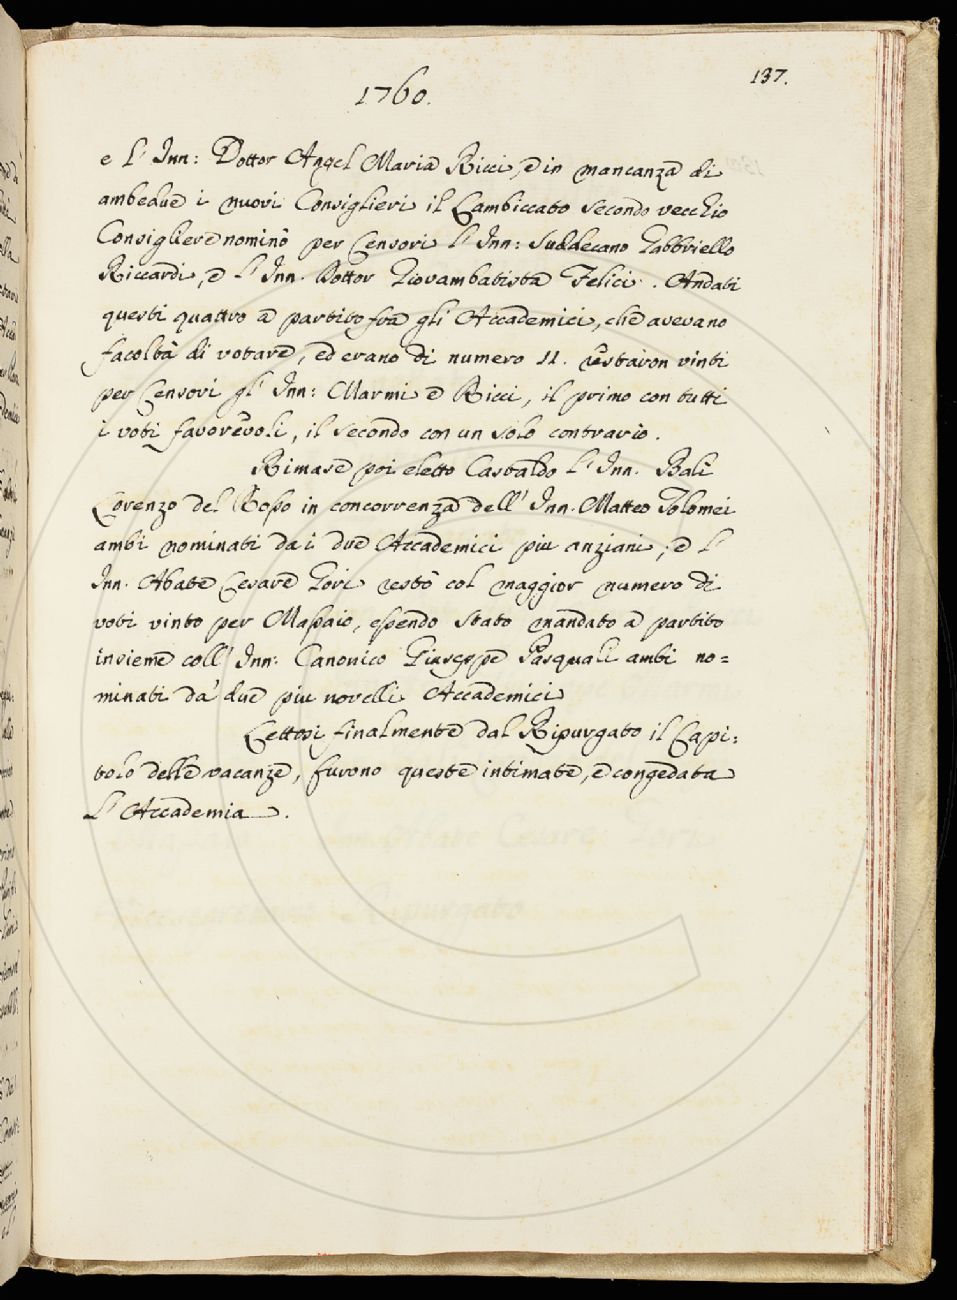 1760.
137.
e l' Inn: Dottor Angel Maria Ricci, e in mancanza di
ambedue i nuovi Consiglieri il Lambiccato secondo vecchio
Consigliere nominò per Censori l' Inn: Suddecano Gabbriello
Riccardi, e l' Inn. Dottor Giovambatista Felici. Andati
questi quattro a partito fra gli Accademici, che avevano
facoltà di votare, ed erano di numero 11. restaron vinti
per Censori gl' Inn: Marmi e Ricci, il primo con tutti
i voti favorevoli, il secondo con un solo contrario.
Rimase poi eletto Castaldo l' Inn. Balì
Lorenzo del Rosso in concorrenza dell' Inn. Matteo Tolomei
ambi nominati da i due Accademici piu anziani; e l'
Inn. Abate Cesare Gori restò col maggior numero di
voti vinto per Massaio, essendo stato mandato a partito
insieme coll' Inn: Canonico Giuseppe Pasquali ambi no=
minati da' due piu novelli Accademici
Lettosi finalmente dal Ripurgato il Capi:
tolo delle vacanze, furono queste intimate, e congedata
l' Accademia.